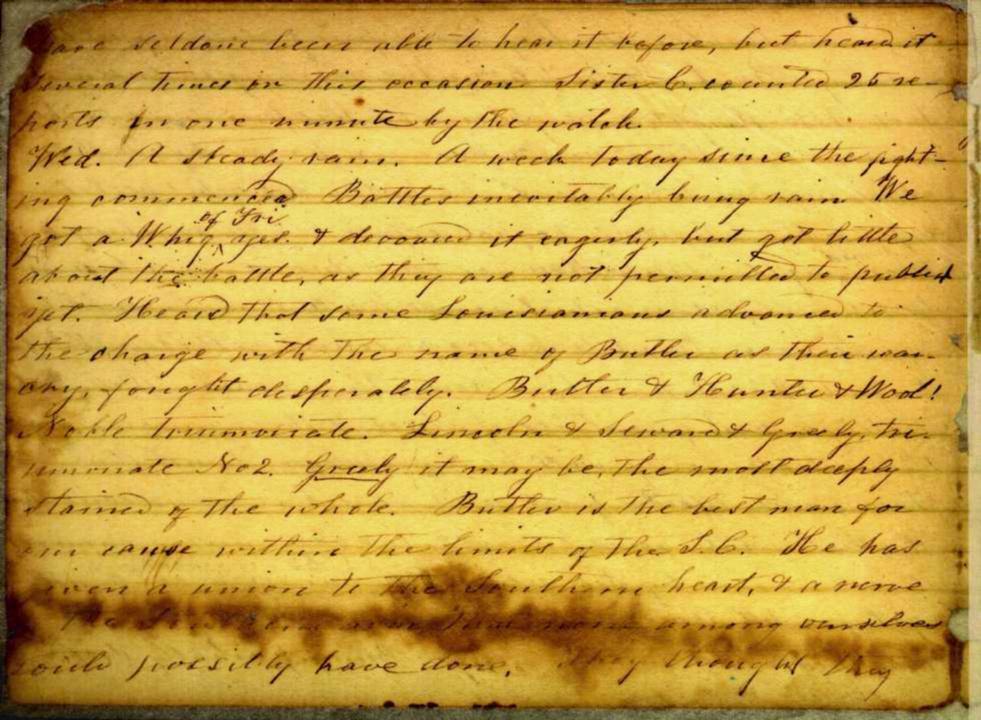 have seldom been able to hear it before, but heard it
several times on this occasion. Sister C. counted 25 re-
ports in one minute by the watch.
Wed. A steady rain. A week today since the fight-
ing commenced. Battles inevitably bring rain. We
of Fri
got a Whig yes. & devoured it eagerly, but got little
about the battle, as they are not permitted to publish
yet. Heard that some Louisianians advanced to
the charge with the name of Butler as their war-
cry, fought desperately. Butler & Hunter & Wool!
Noble triumvirate. Lincoln & Seward & Greely, tri-
umvirate No2. Greely it may be, the most deeply
stained of the whole. Butler is the best man for
our cause within the limits of the S.C. He has
given a union to the Southern heart, & a nerve
the Southern arm that none among ourselves
could possibly have done. They thought they